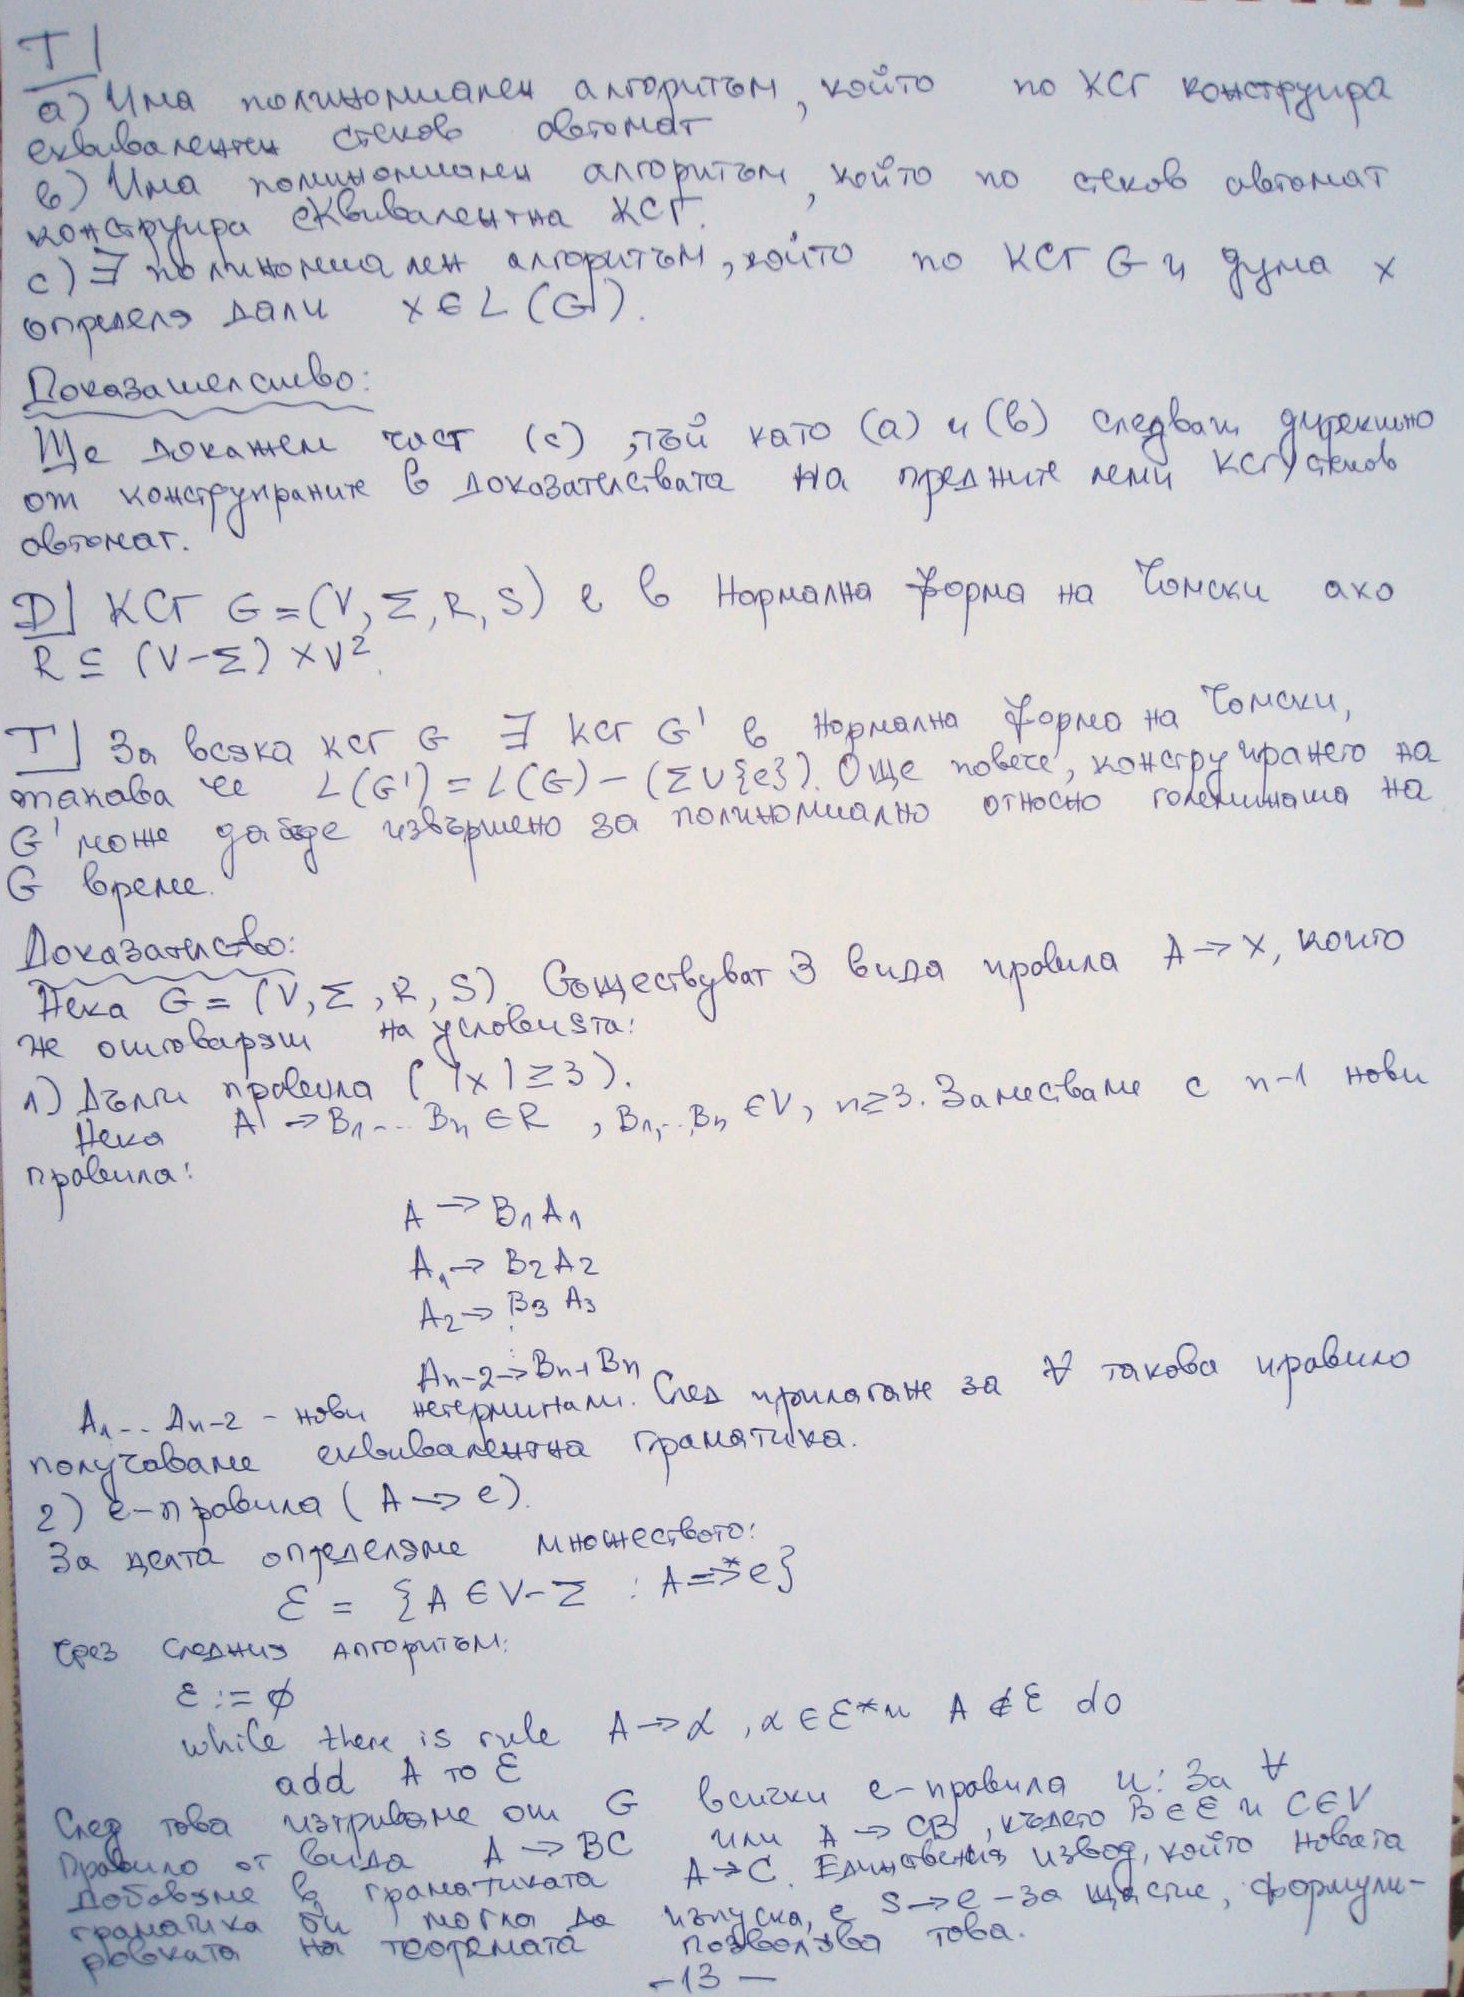 Т|
а) Има полиномиален алгоритъм, който по КСГ конструира
еквивалентен стеков автомат
в) Има полиномиален алгоритъм, който по стеков автомат
конструира еквивалентна КСГ.
с) ∃ полиномиален алгоритъм, който по КСГ G и дума x
определя дали x ∈ L(G).
Доказателство:
Ще докажем част (с), тъй като (а) и (в) следват директно
от конструираните в доказателствата на предните леми КСГ/стеков
автомат.
D| КСГ G = (V, Σ, R, S) е в Нормална форма на Чомски ако
R ⊆ (V-Σ) × V².
Т| За всяка КСГ G ∃ КСГ G' в нормална форма на Чомски,
такава че L(G') = L(G) - (Σ ∪ {e}). Още повече, конструирането на
G' може да бъде извършено за полиномиално относно големината на
G време.
Доказателство:
Нека G = (V, Σ, R, S). Съществуват 3 вида правила A → x, които
не отговарят на условията:
1) Дълги правила (|x| ≥ 3).
Нека A → B₁... Bₙ ∈ R, B₁,..,Bₙ ∈ V, n ≥ 3. Заместваме с n-1 нови
правила:
A → B₁A₁
A₁ → B₂A₂
A₂ → B₃A₃
⋮
Aₙ₋₂ → Bₙ₋₁Bₙ
A₁... Aₙ₋₂ - нови нетерминали. След прилагане за ∀ такова правило
получаваме еквивалентна граматика.
2) e-правила (A → e).
За целта определяме множеството:
Ɛ = {A ∈ V-Σ : A ⇒* e}
Чрез следния алгоритъм:
Ɛ := ∅
while there is rule A → α, α ∈ Ɛ* и A ∉ Ɛ do
add A to Ɛ
След това изтриваме от G всички e-правила и: За ∀
правило от вида A → BC или A → CB, където B ∈ Ɛ и C ∈ V
добавяме в граматиката A → C. Единствения извод, който новата
граматика би могла да изпуска, е S → e - за щастие, формули-
ровката на теоремата позволява това.
-13-